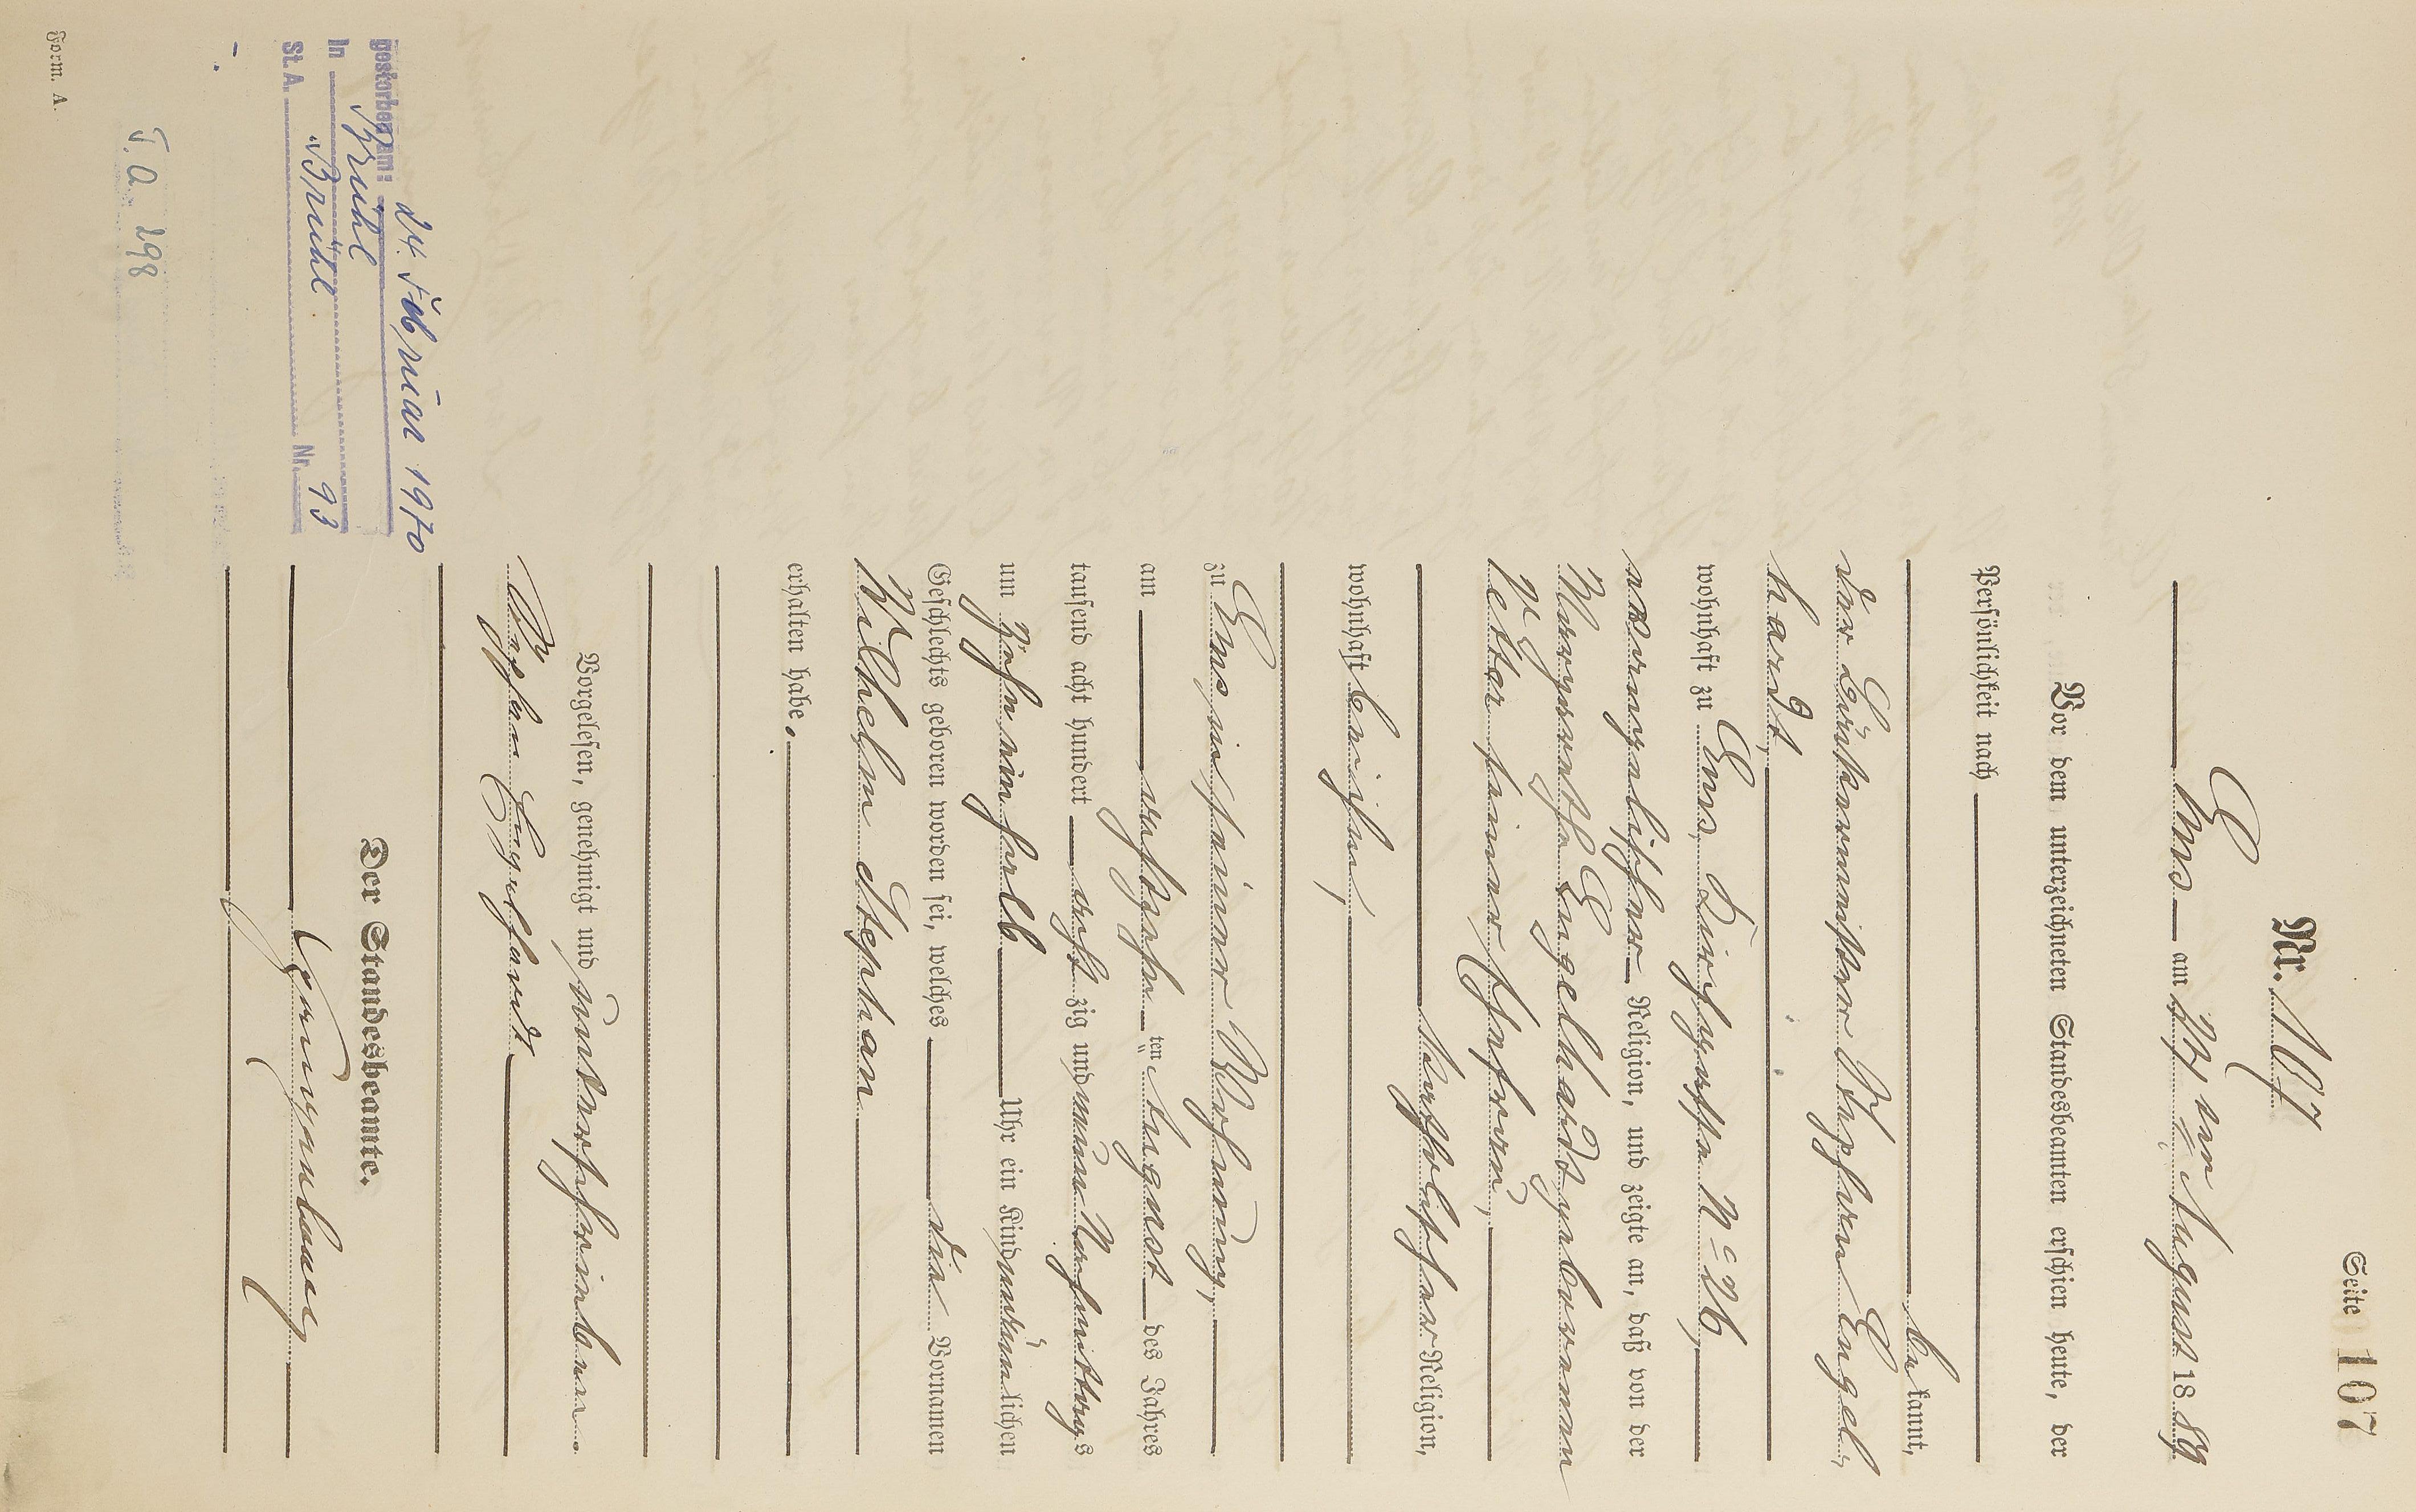 Seite 107
Nr. 107
Ems am 22ten August 1889
Vor dem unterzeichneten Standesbeamten erschien heute, der
Persönlichkeit nach
bekannt,
der Bäckermeister Stephan Engel-
hardt,
wohnhaft zu Ems, Kirchgasse No 26,
evangelischer Religion, und zeigte an, daß von der
Margarethe Engelhardt geborenen
Vetter seiner Ehefrau,
katholischer Religion,
wohnhaft bei ihm,
zu Ems in seiner Wohnung,
am achtzehnten August des Jahres
tausend acht hundert achtzig und neun Nachmittags
um zehn einhalb Uhr ein Kind männlichen
Geschlechts geboren worden sei, welches die Vornamen
Wilhelm Stephan
erhalten habe.
Vorgelesen, genehmigt und unterschrieben
Stephan Engelhardt
Der Standesbeamte.
gestorben am: 24. Februar 1970
in Brühl
St. A. Brühl Nr. 93
T. A. 298
Form. A.